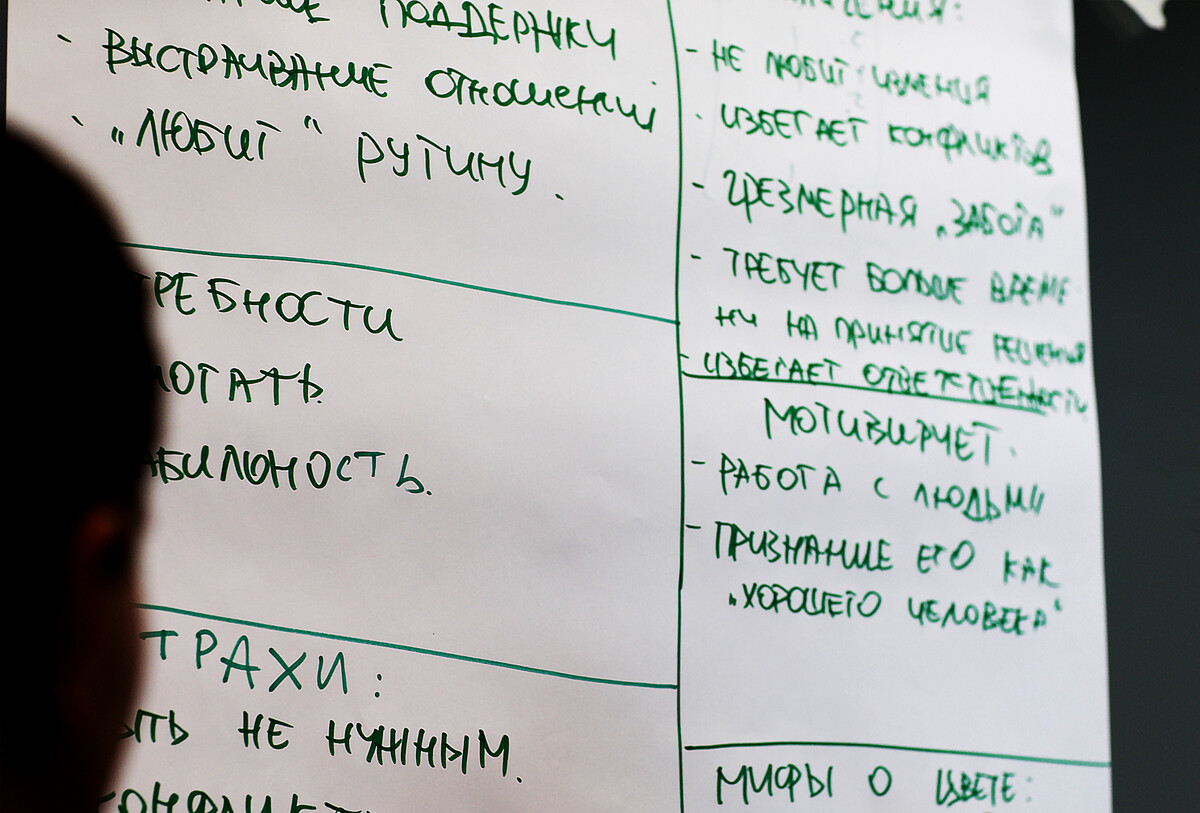 ПОДДЕРЖКИ
- ВЫСТРАИВАНИЕ ОТНОШЕНИЙ
- „ЛЮБИТ“ РУТИНУ.
ТРЕБНОСТИ
ОГАТЬ.
АБИЛЬНОСТЬ.
ТРАХИ:
ЫТЬ НЕ НУЖНЫМ.
ОНФЛИКТ
- НЕ ЛЮБИТ
- ИЗБЕГАЕТ КОНФЛИКТОВ
- ЧРЕЗМЕРНАЯ „ЗАБОТА“
- ТРЕБУЕТ БОЛЬШЕ ВРЕМЕ
НИ НА ПРИНЯТИЕ РЕШЕНИЯ
- ИЗБЕГАЕТ ОТВЕТСТВЕННОСТИ
МОТИВИРУЕТ.
- РАБОТА С ЛЮДЬМИ
- ПРИЗНАНИЕ ЕГО КАК
„ХОРОШЕГО ЧЕЛОВЕКА“
МИФЫ О ЦВЕТЕ: